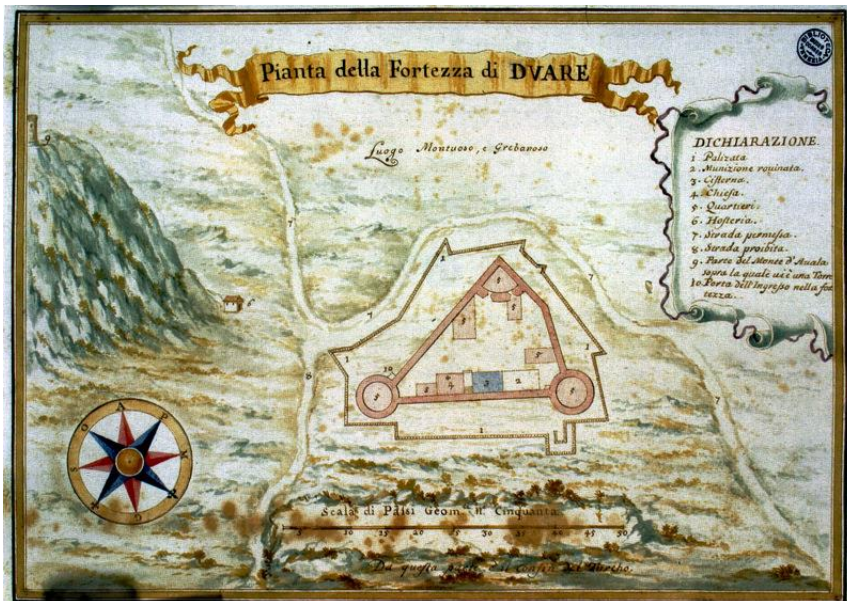 Pianta della Fortezza di DVARE
Luogo Montuoso, e Grebanoso
DICHIARAZIONE.
1. Palizata
2. Munizione rouinata.
3. Cisterna.
4. Chiesa.
5. Quartieri.
6. Hosteria.
7. Strada permessa.
8. Strada proibita.
9. Parte del Monte d'Auala
sopra la quale ui è una Torre
10. Porta dell'Ingresso nella for
tezza.
9
7
7
7
7
6
8
1
1
1
1
10
5
5
5
5
5
5
5
4
3
2
S O A P M G
Scala di Passi Geom. n. Cinquanta
5 10 15 20 25 30 35 40 45 50
Da questa parte è il Confin del Turcho.